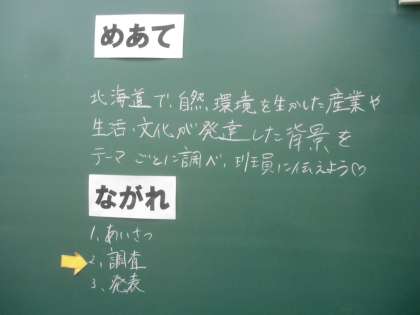 めあて
北海道で、自然、環境を生かした産業や
生活、文化が発達した背景を
テーマごとに調べ、班員に伝えよう♡
ながれ
1、あいさつ
2、調査
3、発表